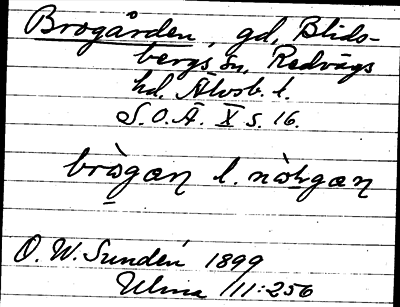 Brogården, gd, Blids-
bergs sn, Redvägs
hd. Älvsb. l.
S.O.Ä. X s. 16.
brògæn l.
O. W. Sundén 1899
Ulma 111:256